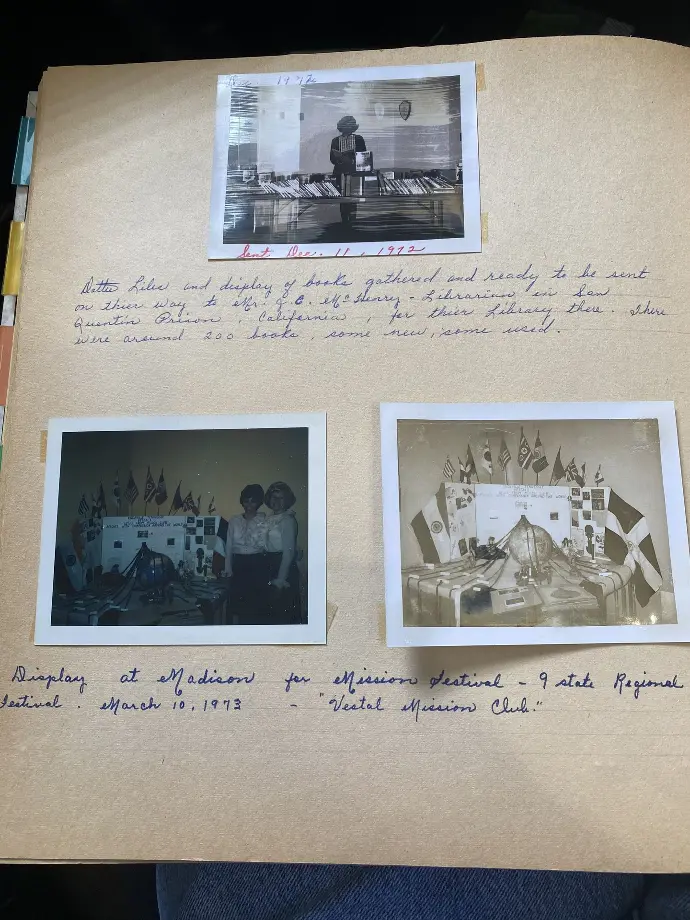 Dec. 1972
Sent Dec. 11, 1972
Dottie Liles and display of books gathered and ready to be sent
on thier way to Mr. G.E. McHenry - Librarian in San
Quentin Prison, California, for thier Library there. There
were around 200 books, some new, some used.
Display at Madison for Mission Festival - 9 state Regional
Festival. March 10, 1973 - "Vestal Mission Club."